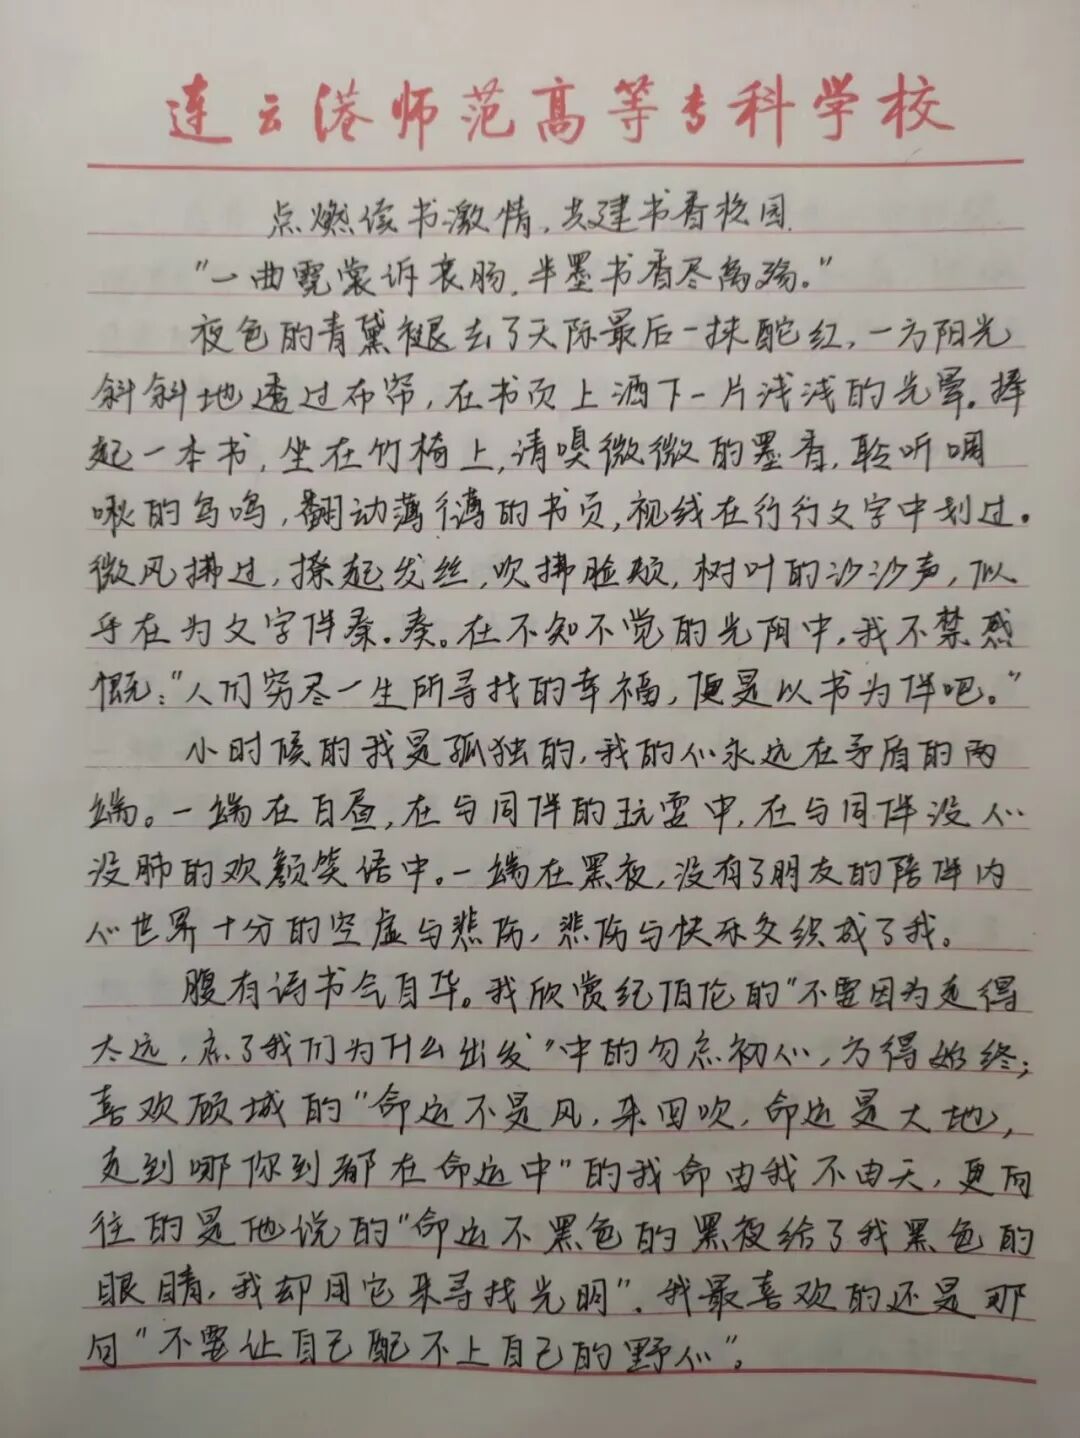 连云港师范高等专科学校
点燃读书激情，共建书香校园
"一曲霓裳诉衷肠，半墨书香尽离殇。"
夜色的青黛褪去了天际最后一抹酡红，一方阳光
斜斜地透过布帘，在书页上洒下一片浅浅的光晕。捧
起一本书，坐在竹椅上，请嗅微微的墨香，聆听啁
啾的鸟鸣，翻动薄薄的书页，视线在行行文字中划过。
微风拂过，撩起发丝，吹拂脸颊，树叶的沙沙声，似
乎在为文字伴奏.奏。在不知不觉的光阴中，我不禁感
慨："人们穷尽一生所寻找的幸福，便是以书为伴吧。"
小时候的我是孤独的，我的心永远在矛盾的两
端。一端在白昼，在与同伴的玩耍中，在与同伴没心
没肺的欢颜笑语中。一端在黑夜，没有了朋友的陪伴内
心世界十分的空虚与悲伤，悲伤与快乐交织成了我。
腹有诗书气自华。我欣赏纪伯伦的"不要因为走得
太远，忘了我们为什么出发"中的勿忘初心，方得始终；
喜欢顾城的"命运不是风，来回吹，命运是大地，
走到哪你到都在命运中"的我命由我不由天，更向
往的是他说的"命运不黑色的黑夜给了我黑色的
眼睛，我却用它来寻找光明"。我最喜欢的还是那
句"不要让自己配不上自己的野心"。